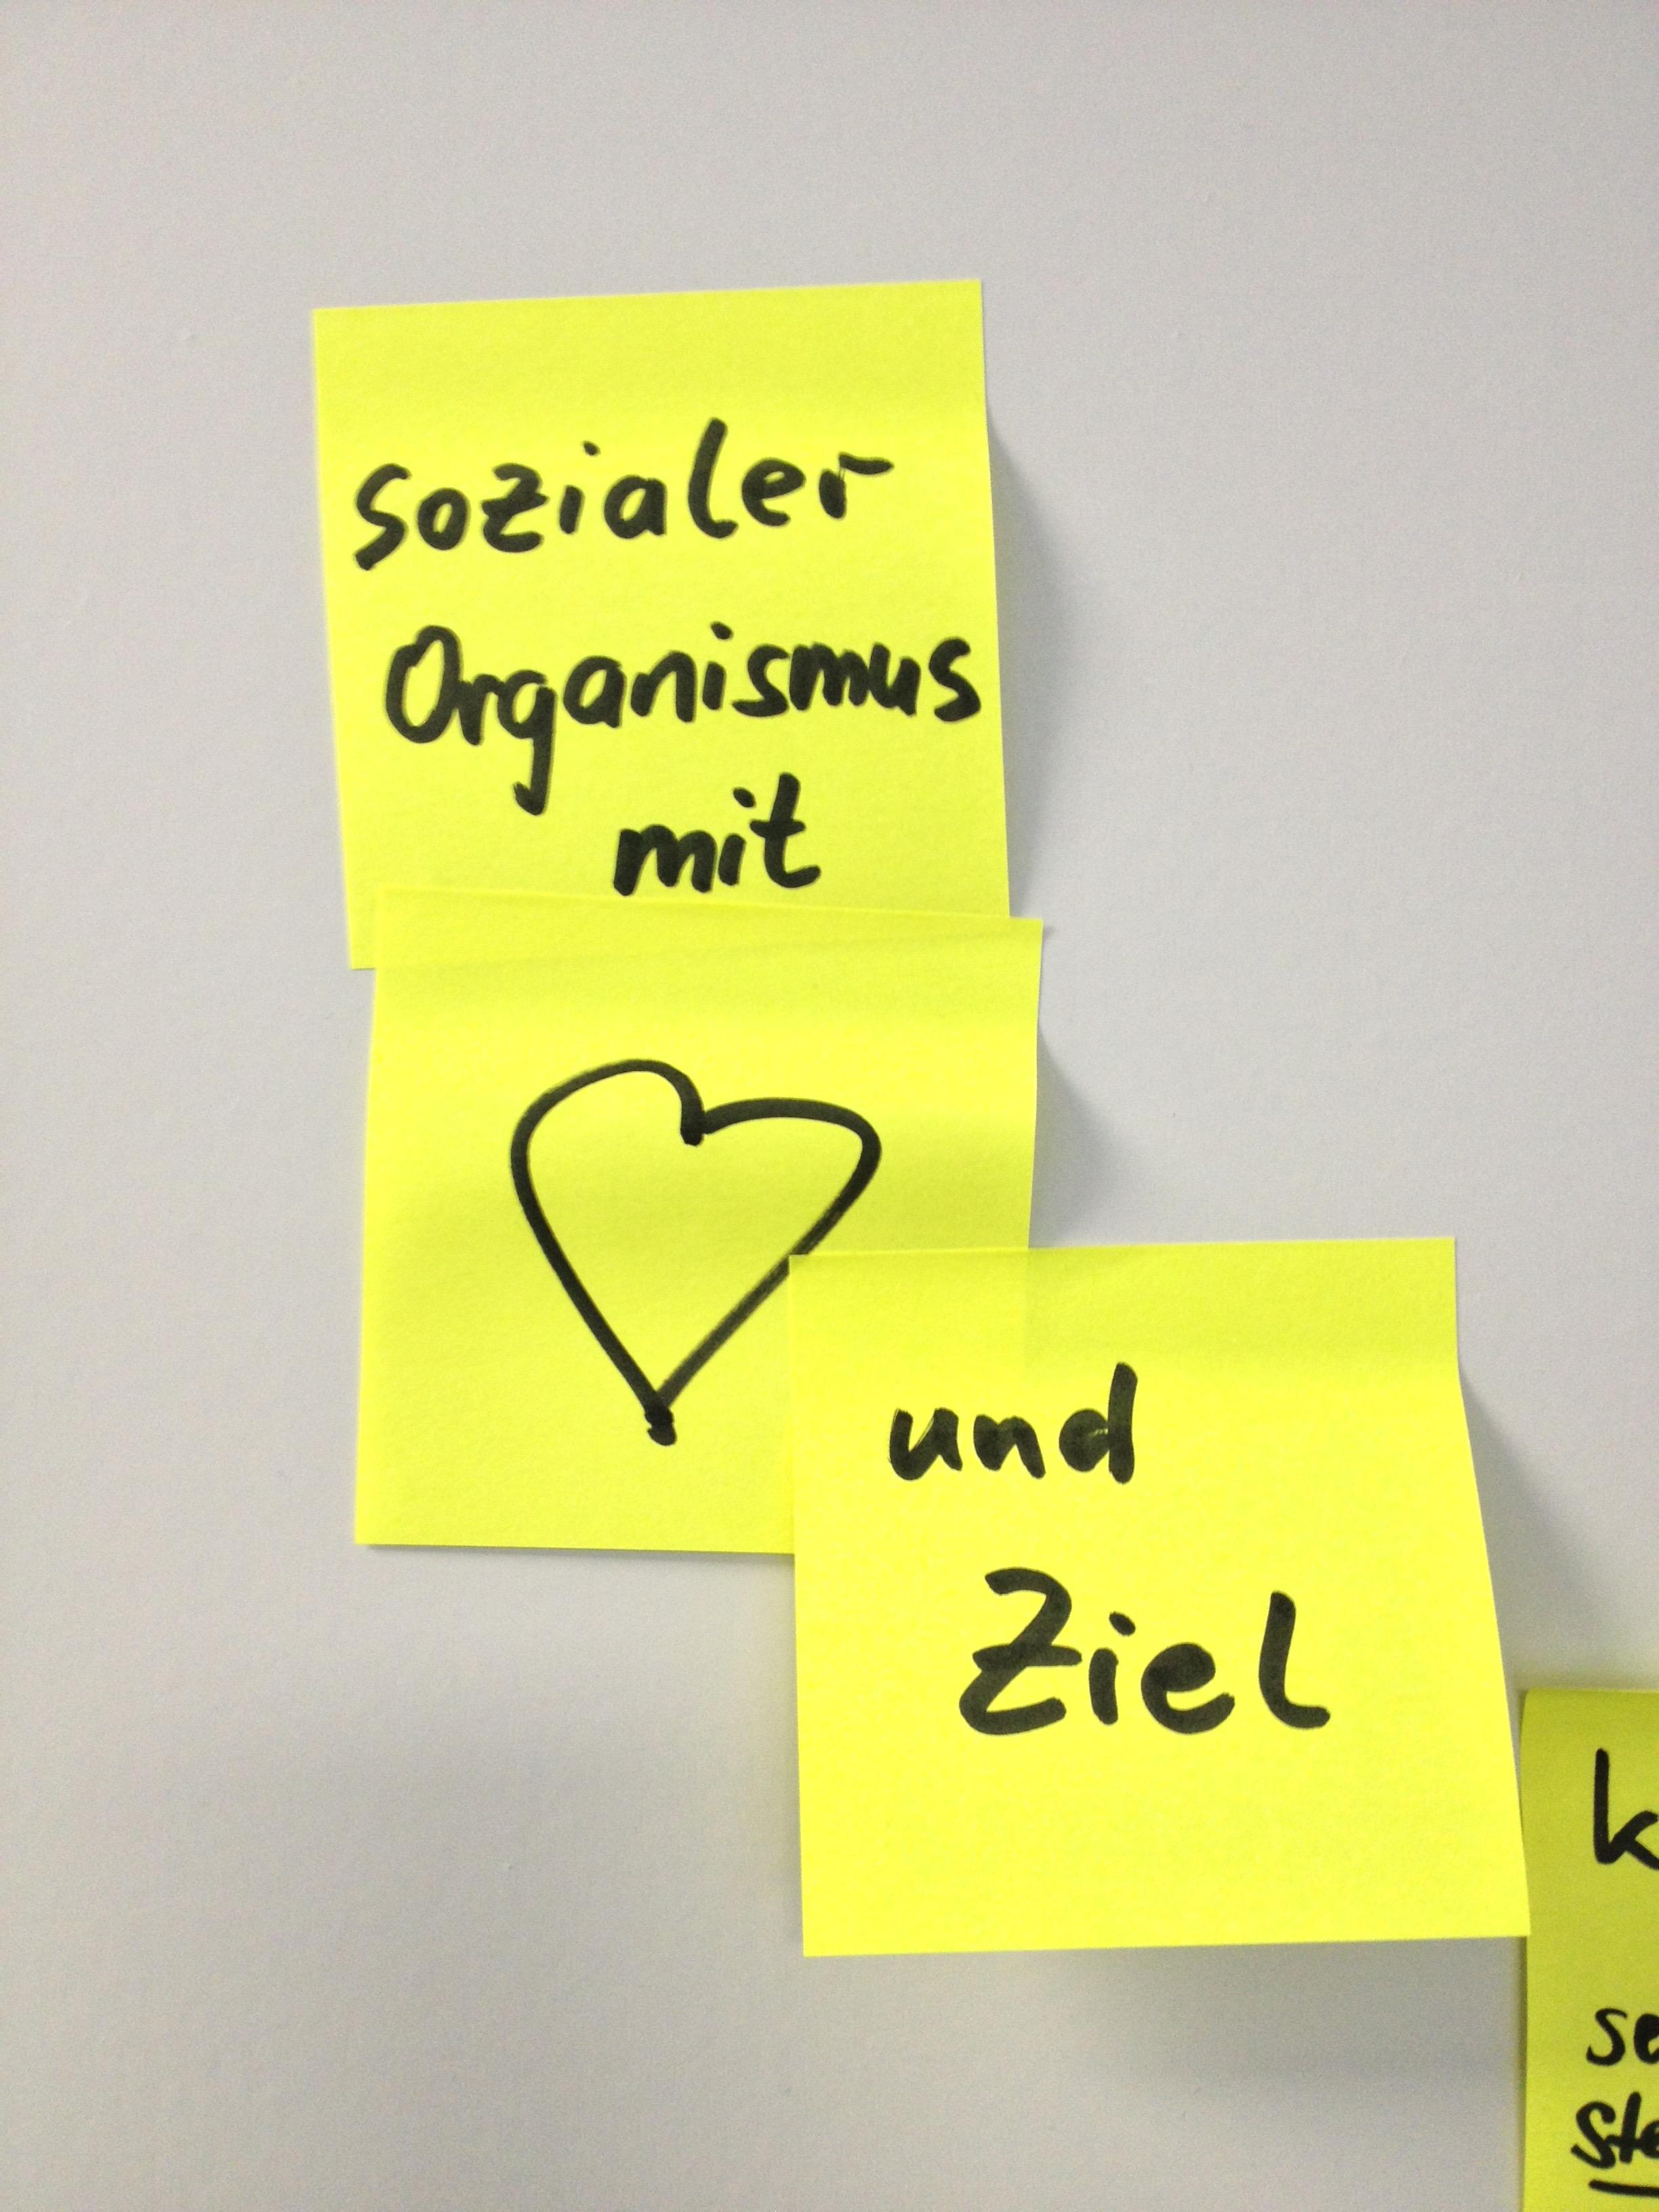 sozialer
Organismus
mit
und
Ziel